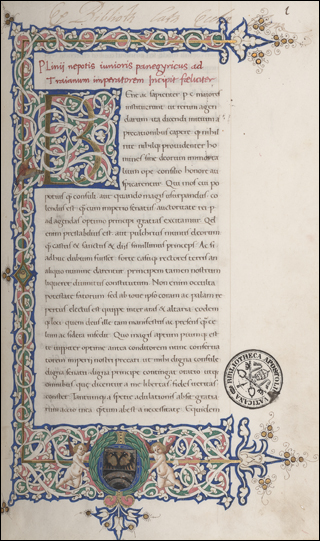 PLinij nepotis iunioris panegyricus ad
Traianum imperatorem Incipit fœliciter
Ene ac sapienter p c maiores
instituerunt ut rerum agen
darum ita dicendi initium a
precationibus capere q nihil
rite nihilq prouidenter ho
mines sine deorum immorta
lium ope consilio honore au
spicarentur Qui mos cui po
tius q consuli aut quando magis usurpandus co
lendusq est q cum imperio senatus auctoritate rei p
ad agendas optimo principi gratias excitamur Qd
enim prestabilius est aut pulchrius munus deorum
q castus & sanctus & dijs simillimus princeps Ac si
adhuc dubium fuisset forte casuq rectores terris an
aliquo numine darentur principem tamen nostrum
liqueret diuinitus constitutum Non enim occulta
potestate fatorum sed ab ioue ipso coram ac palam re
pertus electus est quippe inter aras & altaria eodemq
loco quem deus ille tam manifestus ac presens q celum
ac sidera insedit Quo magis aptum piumq est
te iuppiter optime antea conditorem nunc conserua
torem imperij nostri precari ut mihi digna consule
digna senatu digna principe contingat oratio utq
omnibus que dicentur a me libertas fides ueritas
constet Tantumq a specie adulationis absit gratia
rum actio mea q tum abest a necessitate Equidem
BIBLIOTHECA APOSTOLICA VATICANA